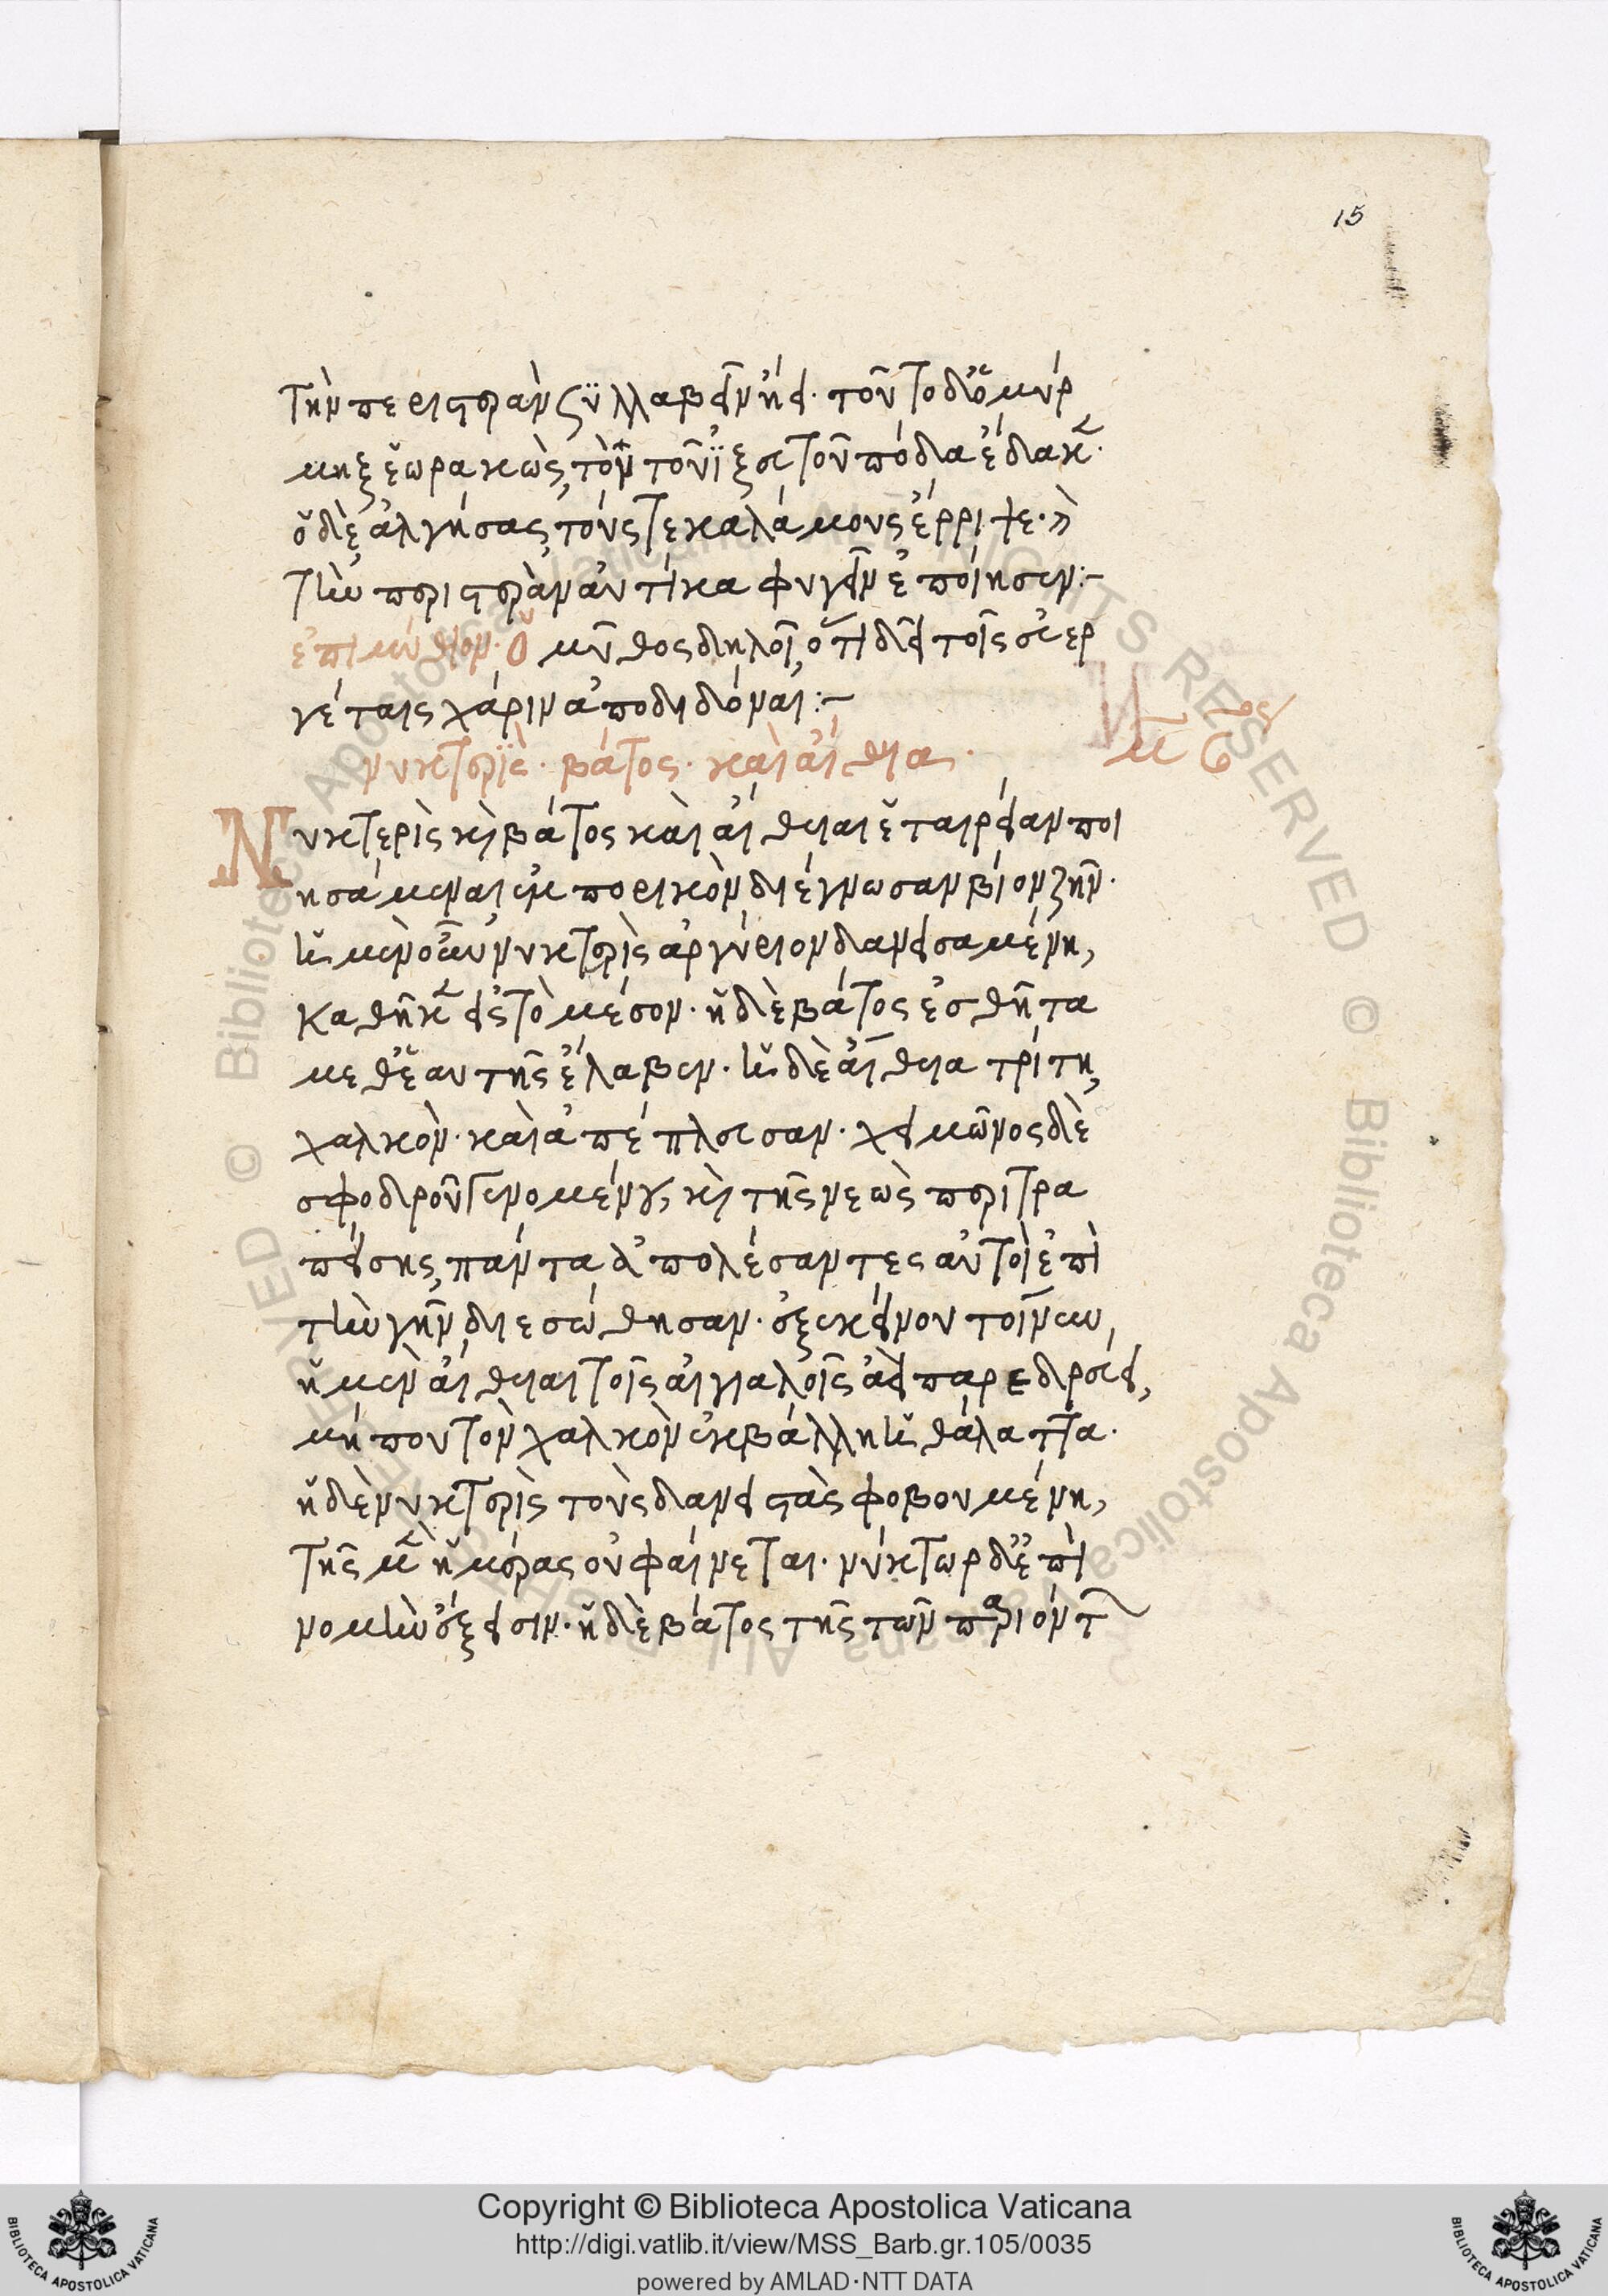 15
τὴν περιστερὰν ξυλλαβεῖν ἤει. τοῦτο δ' ὁ μύρ
μηξ ἑωρακὼς, τὸν τοῦ ἰξευτοῦ πόδα ἔδακεν.
ὁ δὲ ἀλγήσας, τούς τε καλάμους ἔρριψε. καὶ
τὴν περιστερὰν αὐτίκα φυγεῖν ἐποίησεν:-
ἐπιμύθιον. Ὁ μῦθος δηλοῖ, ὅτι δεῖ τοῖς εὐερ
γέταις χάριν ἀποδιδόναι:-
νυκτερὶς. βάτος. καὶ αἴθυια.
μῦθος
Νυκτερὶς καὶ βάτος καὶ αἴθυιαι ἑταιρείαν ποι
ησάμεναι ἐμπορικὸν διέγνωσαν βίον ζῆν.
ἡ μὲν οὖν νυκτερὶς ἀργύριον δανεισαμένη,
καθῆκεν εἰς τὸ μέσον. ἡ δὲ βάτος ἐσθῆτα
μεθ' ἑαυτῆς ἔλαβεν. ἡ δὲ αἴθυια τρίτη,
χαλκὸν. καὶ ἀπέπλευσαν. χειμῶνος δὲ
σφοδροῦ γενομένου, καὶ τῆς νεὼς περιτρα
πείσης, πάντα ἀπολέσαντες αὐτοὶ ἐπὶ
τὴν γῆν διεσώθησαν. ἐξ ἐκείνου τοίνυν,
ἡ μὲν αἴθυια τοῖς αἰγιαλοῖς ἀεὶ παρεδρεύει,
μή που τὸν χαλκὸν ἐκβάλλη ἡ θάλαττα.
ἡ δὲ νυκτερὶς τοὺς δανειστὰς φοβουμένη,
τῆς μὲν ἡμέρας οὐ φαίνεται. νύκτωρ δ' ἐπὶ
νομὴν ἔξεισιν. ἡ δὲ βάτος τῆς τῶν παριόντων
Copyright © Biblioteca Apostolica Vaticana
http://digi.vatlib.it/view/MSS_Barb.gr.105/0035
powered by AMLAD·NTT DATA